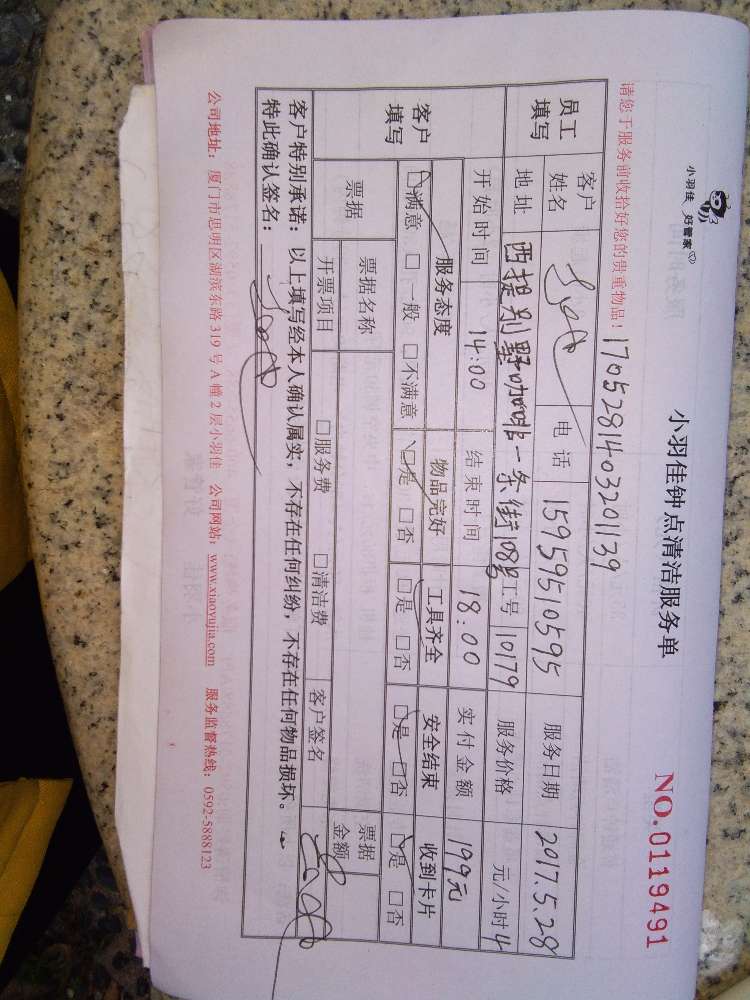 小羽佳 好管家
小羽佳钟点清洁服务单
NO.0119491
请您于服务前收拾好您的贵重物品！ 1705281403201139
员工填写 客户姓名 电话 15959510595 服务日期 2017.5.28
地址 西提别墅咖啡一条街108号 工号 10179 服务价格 元/小时 4
开始时间 14:00 结束时间 18:00 实付金额 199元
客户填写 服务态度 物品完好 工具齐全 安全结束 收到卡片
□满意 □一般 □不满意 □是 □否 □是 □否 □是 □否 □是 □否
票据 票据名称 □服务费 □清洁费 客户签名 票据金额
开票项目
客户特别承诺：以上填写经本人确认属实，不存在任何纠纷，不存在任何物品损坏。
特此确认签名：
公司地址：厦门市思明区湖滨东路319号A幢2层小羽佳 公司网站：www.xiaoyujia.com 服务监督热线：0592-5888123